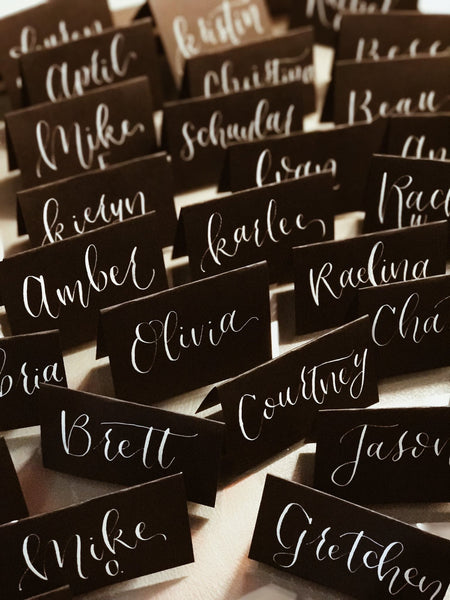 kristin
April
Christina
Mike
Schuylar
Beau
kieryn
karlee
Amber
Raelina
Olivia
Cha
bria
Courtney
Brett
Jason
Mike
O.
Gretchen